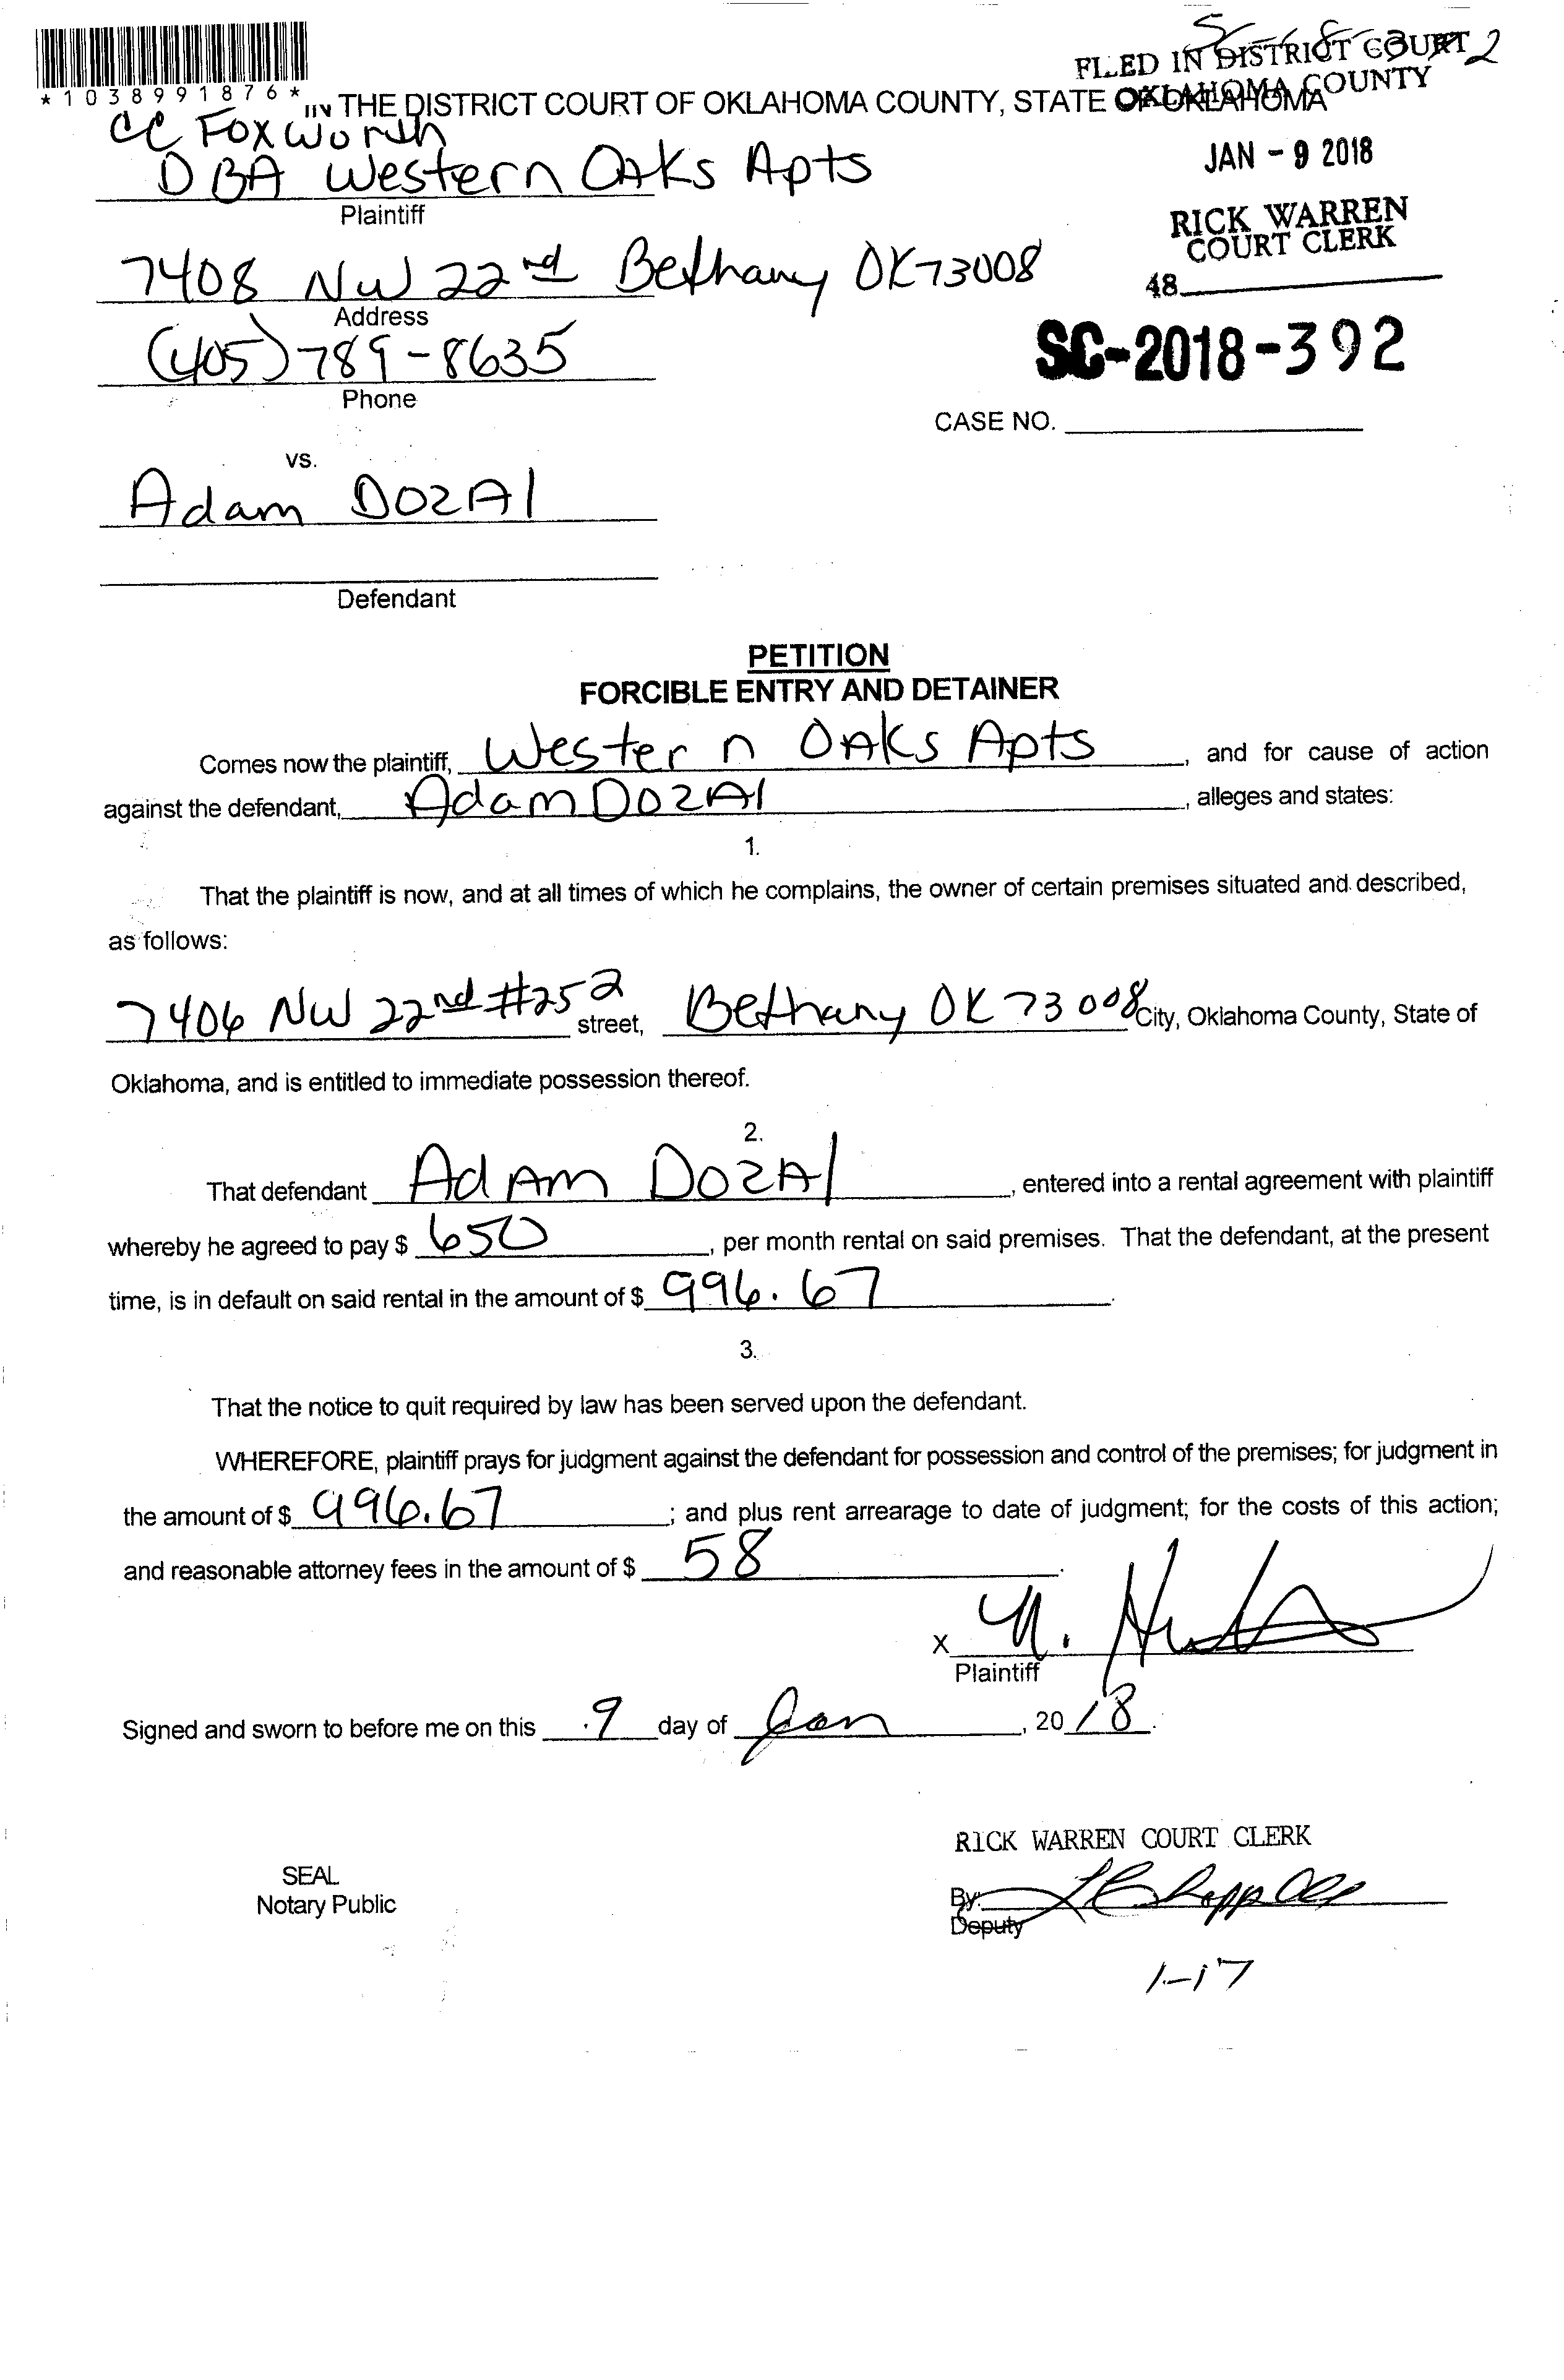 *1038991876*
FILED IN DISTRICT COURT
OKLAHOMA COUNTY
IN THE DISTRICT COURT OF OKLAHOMA COUNTY, STATE OF OKLAHOMA
CC Foxworth
DBA Western Oaks Apts
Plaintiff
JAN - 9 2018
RICK WARREN
COURT CLERK
7408 NW 22nd Bethany OK 73008
Address
48
(405) 789-8635
Phone
SC-2018-392
CASE NO.
vs.
Adam DOZAl
Defendant
PETITION
FORCIBLE ENTRY AND DETAINER
Comes now the plaintiff, Western OAKs Apts, and for cause of action
against the defendant, Adam DOZAl, alleges and states:
1.
That the plaintiff is now, and at all times of which he complains, the owner of certain premises situated and described,
as follows:
7406 NW 22nd #252 street, Bethany OK 73008 City, Oklahoma County, State of
Oklahoma, and is entitled to immediate possession thereof.
2.
That defendant AdAm DOZAl, entered into a rental agreement with plaintiff
whereby he agreed to pay $ 650, per month rental on said premises. That the defendant, at the present
time, is in default on said rental in the amount of $ 996.67.
3.
That the notice to quit required by law has been served upon the defendant.
WHEREFORE, plaintiff prays for judgment against the defendant for possession and control of the premises; for judgment in
the amount of $ 996.67; and plus rent arrearage to date of judgment; for the costs of this action;
and reasonable attorney fees in the amount of $ 58.
X
Plaintiff
Signed and sworn to before me on this 9 day of Jan, 2018.
RICK WARREN COURT CLERK
SEAL
Notary Public
By:
Deputy
1-17